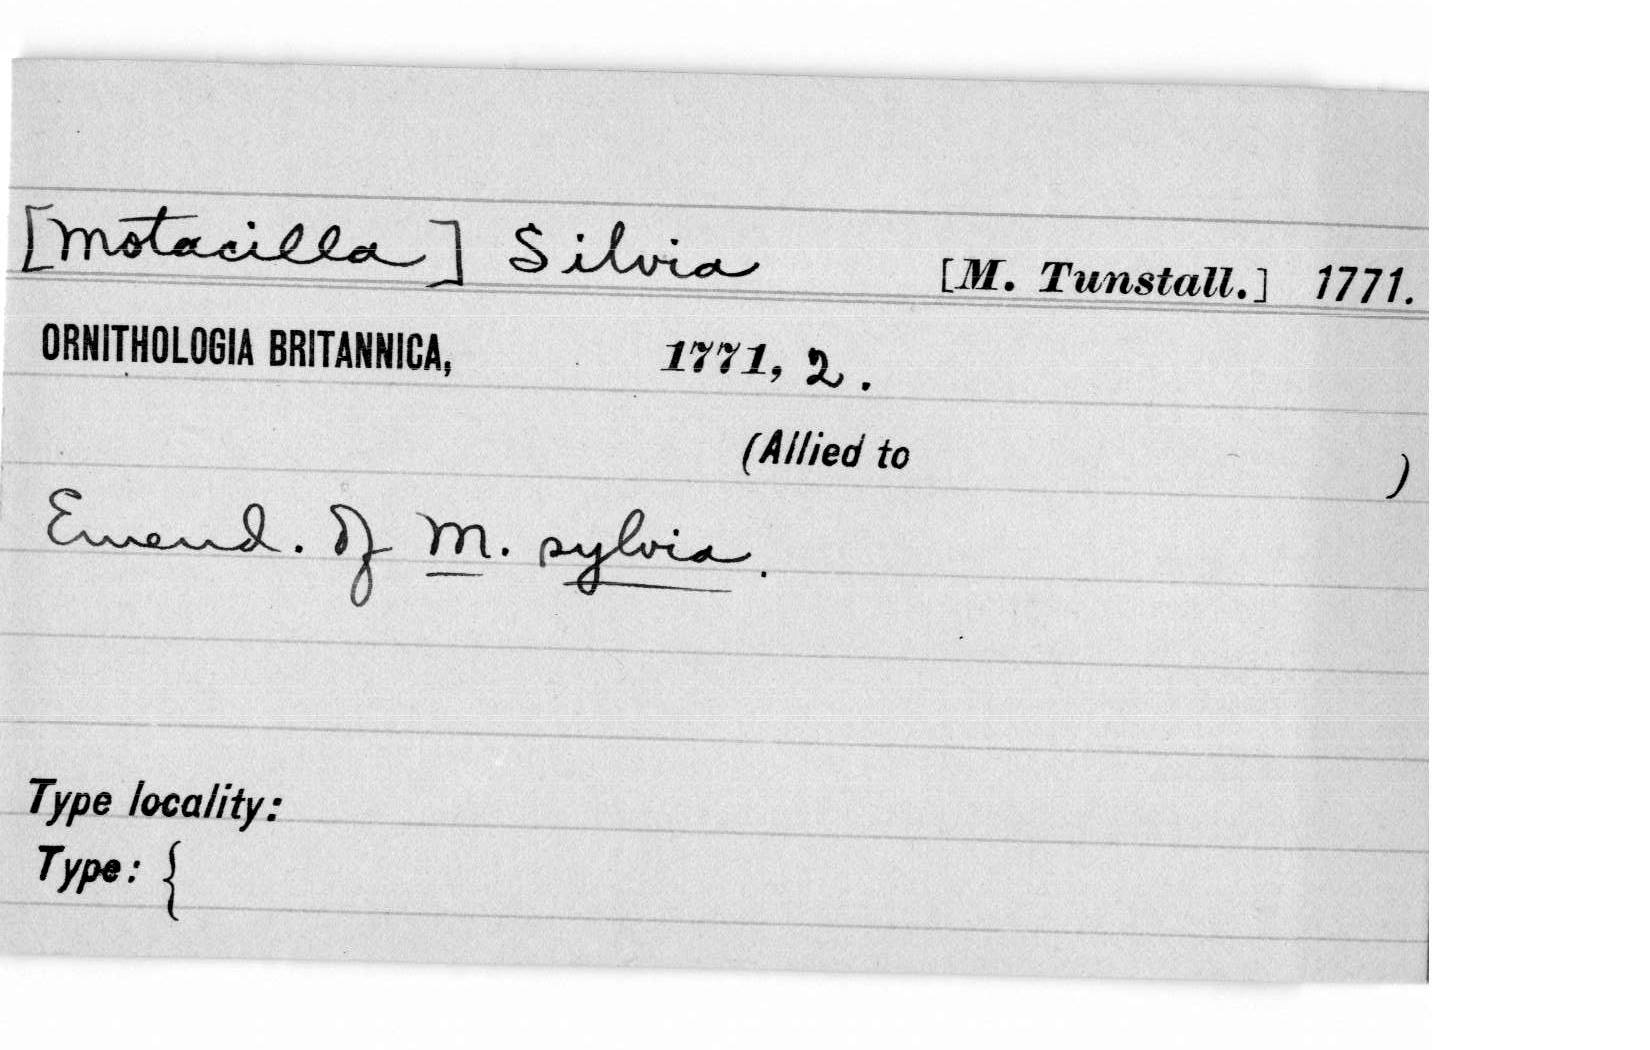 [Motacilla] Silvia [M. Tunstall.] 1771.
ORNITHOLOGIA BRITANNICA, 1771, 2.
(Allied to )
Emend. of M. sylvia.
Type locality:
Type: {